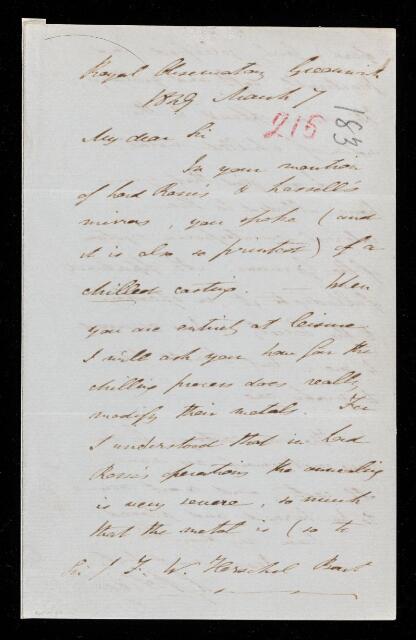 Royal Observatory Greenwich
1849 March 7
215
183
My dear Sir
In your mention
of Lord Rosse's & Lassell's
mirrors, you spoke (and
it is also so printed) of a
chilled casting. — When
you are entirely at leisure
I will ask you how far the
chilling process does really
modify their metals. For
I understood that in Lord
Rosse's operations the annealing
is very severe, so much
that the metal is (so to
Sir J. F. W. Herschel Bart